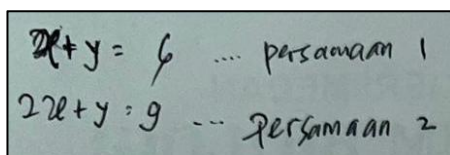 x + y = 6 .... persamaan 1
2x + y = 9 ... persamaan 2